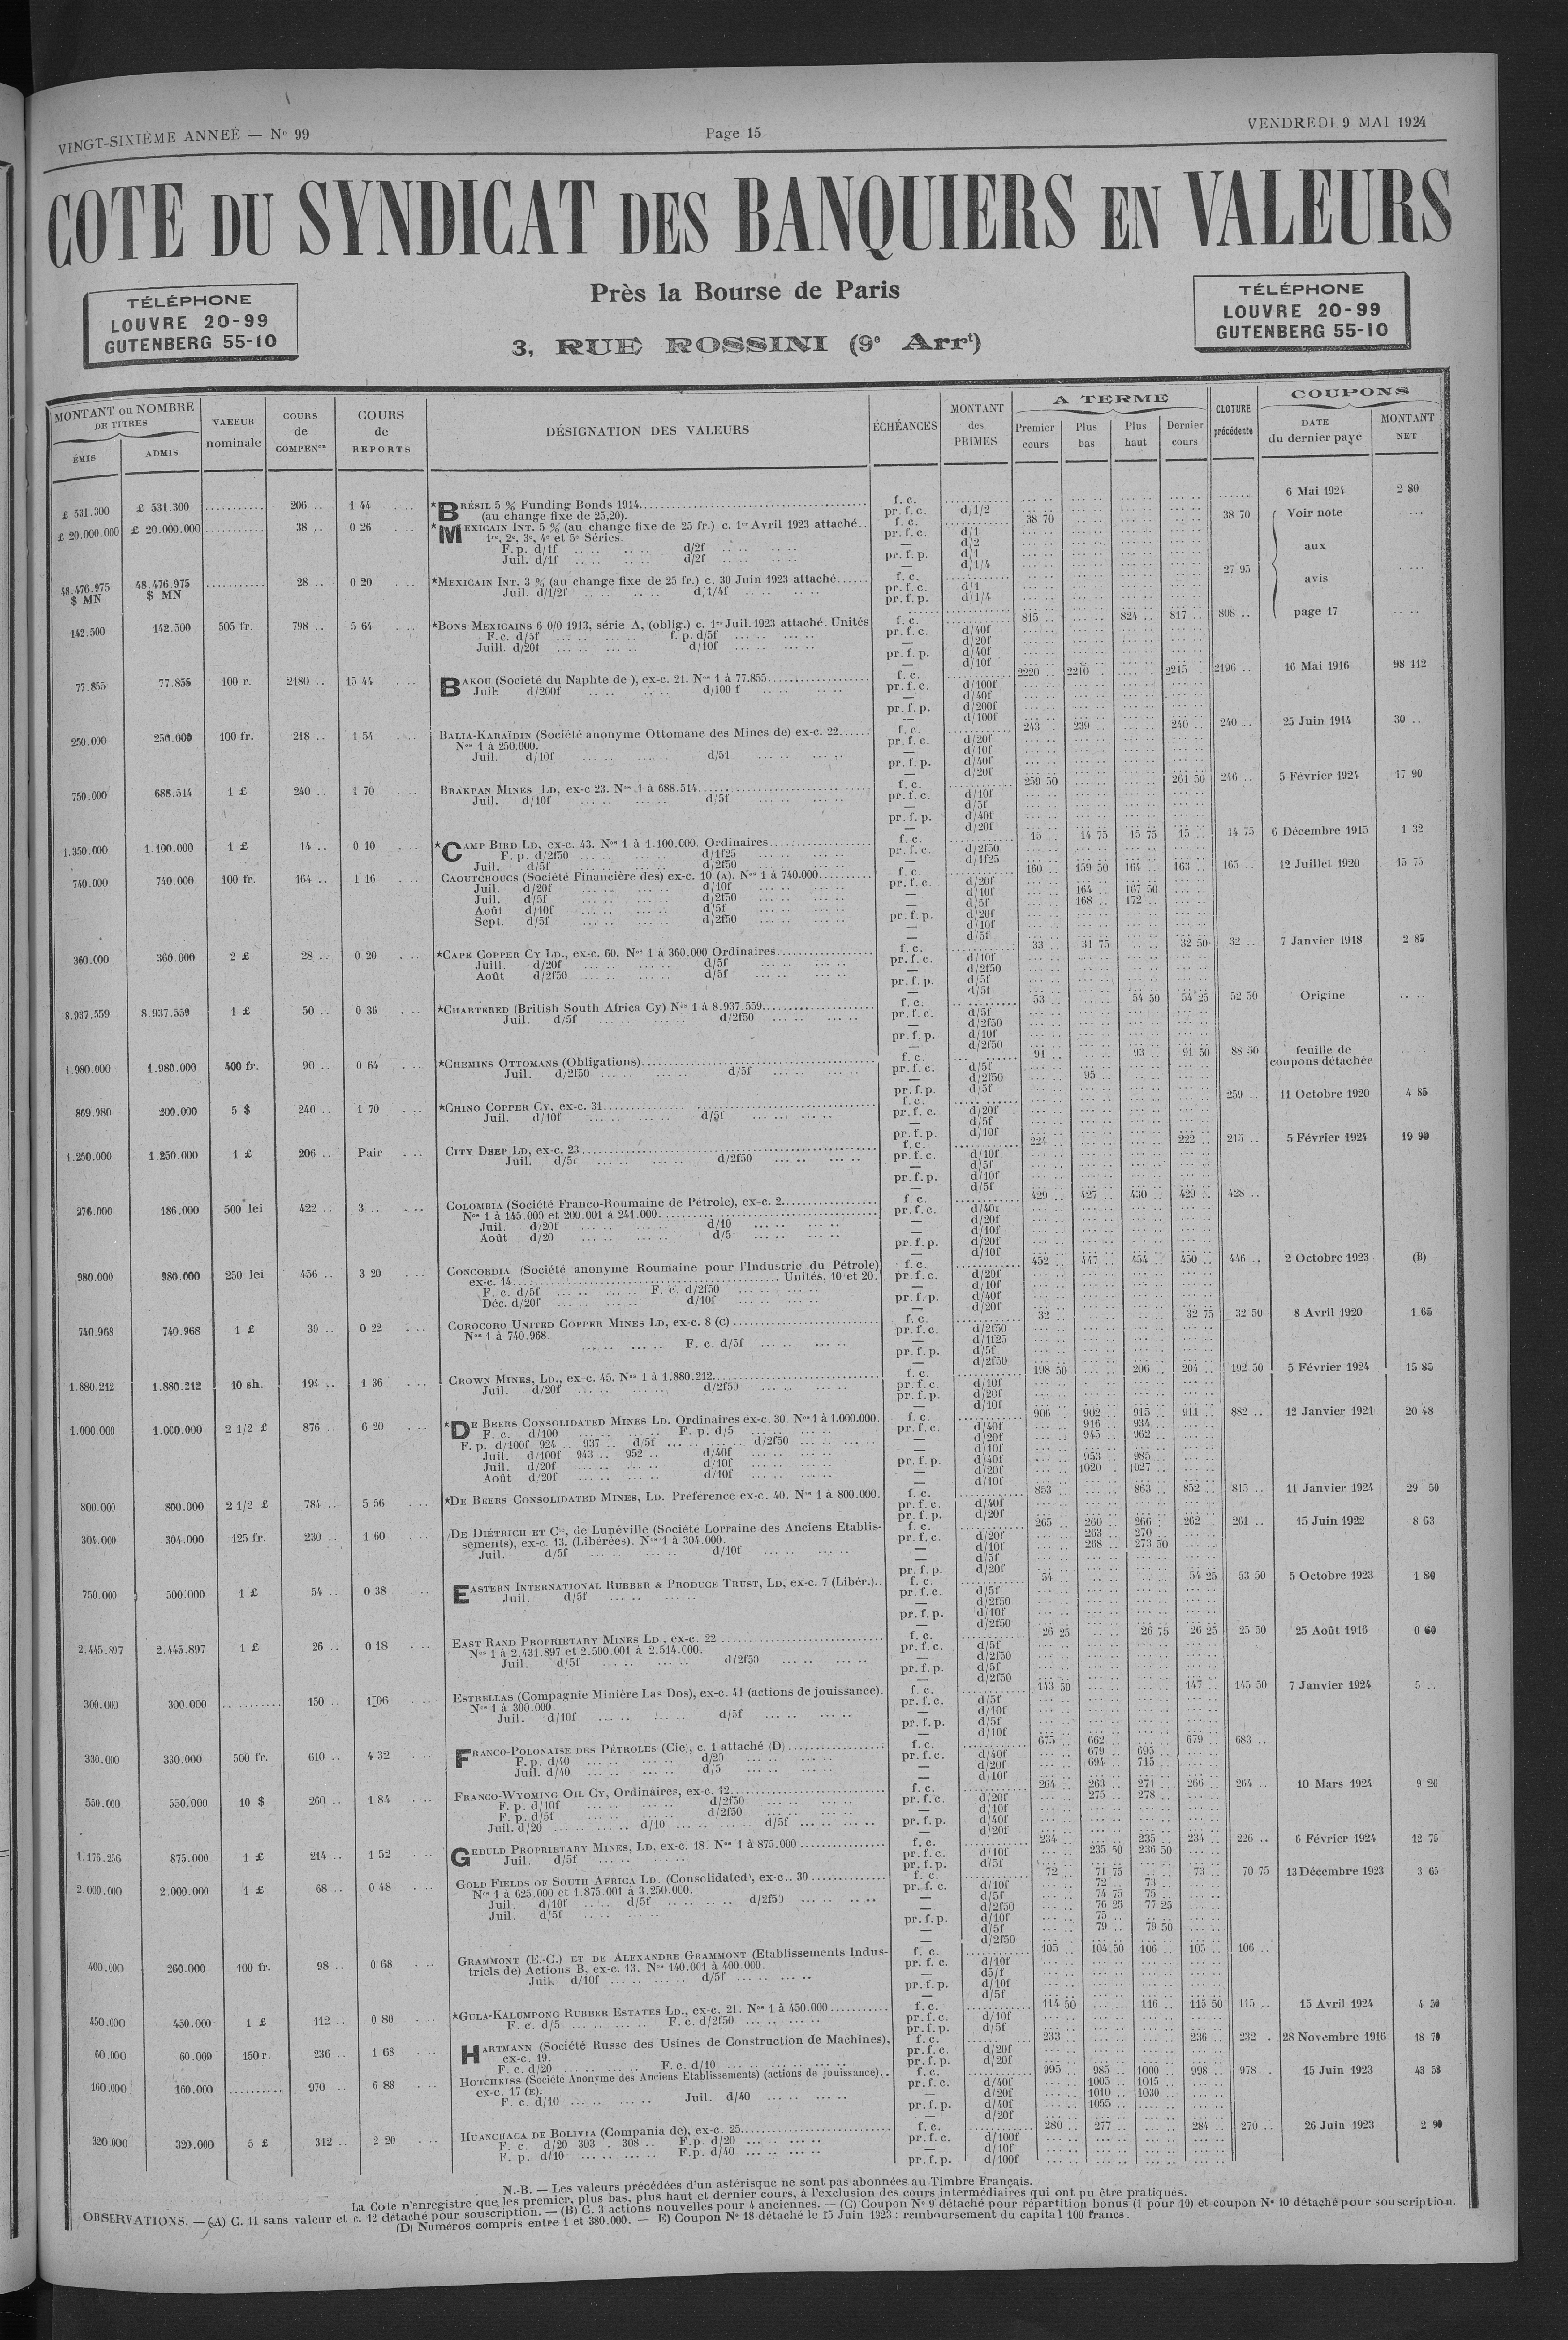 VINGT-SIXIÈME ANNEÉ — Nº 99 Page 15 VENDREDI 9 MAI 1924
COTE DU SYNDICAT DES BANQUIERS EN VALEURS
Près la Bourse de Paris
TÉLÉPHONE
LOUVRE 20-99
GUTENBERG 55-10
3, RUE ROSSINI (9e Arrt)
TÉLÉPHONE
LOUVRE 20-99
GUTENBERG 55-10
MONTANT ou NOMBRE DE TITRES
ÉMIS ADMIS
VAEEUR nominale
COURS de COMPENon
COURS de REPORTS
DÉSIGNATION DES VALEURS
ÉCHÉANCES
MONTANT des PRIMES
A TERME
Premier cours Plus bas Plus haut Dernier cours
CLOTURE précédente
COUPONS
DATE du dernier payé
MONTANT NET
£ 531.300 £ 531.300 206 .. 1 44 *BRÉSIL 5 % Funding Bonds 1914 f. c. 6 Mai 1924 2 80
(au change fixe de 25,20). pr. f. c. d/1/2
£ 20.000.000 £ 20.000.000 38 .. 0 26 *MEXICAIN INT. 5 % (au change fixe de 25 fr.) c. 1er Avril 1923 attaché.. f. c. 38 70 38 70 Voir note
1re, 2e, 3e, 4e et 5e Séries. pr. f. c. d/1
F. p. d/1f d/2f — d/2
Juil. d/1f d/2f pr. f. p. d/1 aux
— d/1/4
48.476.975 $ MN 48.476.975 $ MN 28 .. 0 20 *MEXICAIN INT. 3 % (au change fixe de 25 fr.) c. 30 Juin 1923 attaché f. c. 27 95 avis
Juil. d/1/2f d/1/4f pr. f. c. d/1
pr. f. p. d/1/4
142.500 142.500 505 fr. 798 .. 5 64 *BONS MEXICAINS 6 0/0 1913, série A, (oblig.) c. 1er Juil. 1923 attaché. Unités f. c. 815 .. 824 .. 817 .. 808 .. page 17
F. c. d/5f f. p. d/5f pr. f. c. d/40f
Juill. d/20f d/10f — d/20f
pr. f. p. d/40f
— d/10f
77.855 77.855 100 r. 2180 .. 15 44 BAKOU (Société du Naphte de ), ex-c. 21. Nos 1 à 77.855 f. c. 2220 .. 2210 . 2215 . 2196 .. 16 Mai 1916 98 112
Juil. d/200f d/100 f pr. f. c. d/100f
— d/40f
pr. f. p. d/200f
— d/100f
250.000 250.000 100 fr. 218 .. 1 54 BALIA-KARAÏDIN (Société anonyme Ottomane des Mines de) ex-c. 22 f. c. 243 . 239 .. 240 .. 240 .. 25 Juin 1914 30 ..
Nos 1 à 250.000. pr. f. c. d/20f
Juil. d/10f d/51 — d/10f
pr. f. p. d/40f
— d/20f
750.000 688.514 1 £ 240 .. 1 70 BRAKPAN MINES LD, ex-c 23. Nos 1 à 688.514 f. c. 259 50 261 50 246 .. 5 Février 1924 17 90
Juil. d/10f d/5f pr. f. c. d/10f
— d/5f
pr. f. p. d/40f
— d/20f
1.350.000 1.100.000 1 £ 14 .. 0 10 *CAMP BIRD LD, ex-c. 43. Nos 1 à 1.100.000. Ordinaires f. c. 15 .. 14 75 15 75 15 .. 14 75 6 Décembre 1915 1 32
F. p. d/2f50 d/1f25 pr. f. c. d/2f50
Juil. d/5f d/2f50 — d/1f25
740.000 740.000 100 fr. 164 .. 1 16 CAOUTCHOUCS (Société Financière des) ex-c. 10 (A). Nos 1 à 740.000 f. c. 160 .. 159 50 164 .. 163 .. 165 .. 12 Juillet 1920 15 75
Juil. d/20f d/10f pr. f. c. d/20f
Juil. d/5f d/2f50 — d/10f 164 .. 167 50
Août d/10f d/5f — d/5f 168 .. 172 ..
Sept. d/5f d/2f50 pr. f. p. d/20f
— d/10f
— d/5f
360.000 360.000 2 £ 28 .. 0 20 *CAPE COPPER CY LD., ex-c. 60. Nos 1 à 360.000 Ordinaires f. c. 33 .. 31 75 32 50 32 .. 7 Janvier 1918 2 85
Juill. d/20f d/5f pr. f. c. d/10f
Août d/2f50 d/5f — d/2f50
pr. f. p. d/5f
— d/5f
8.937.559 8.937.559 1 £ 50 .. 0 36 *CHARTERED (British South Africa Cy) Nos 1 à 8.937.559 f. c. 53 .. 54 50 54 25 52 50 Origine
Juil. d/5f d/2f50 pr. f. c. d/5f
— d/2f50
pr. f. p. d/10f
— d/2f50
1.980.000 1.980.000 400 fr. 90 .. 0 64 *CHEMINS OTTOMANS (Obligations) f. c. 91 .. 93 .. 91 50 88 50 feuille de coupons détachée
Juil. d/2f50 d/5f pr. f. c. d/5f
— d/2f50 95 ..
pr. f. p. d/5f
869.980 200.000 5 $ 240 .. 1 70 *CHINO COPPER CY. ex-c. 31 f. c. 259 .. 11 Octobre 1920 4 85
Juil. d/10f d/5f pr. f. c. d/20f
— d/5f
pr. f. p. d/10f
1.250.000 1.250.000 1 £ 206 .. Pair CITY DEEP LD, ex-c. 23 f. c. 224 .. 222 .. 215 .. 5 Février 1924 19 90
Juil. d/5f d/2f50 pr. f. c. d/10f
— d/5f
pr. f. p. d/10f
— d/5f
276.000 186.000 500 lei 422 .. 3 .. COLOMBIA (Société Franco-Roumaine de Pétrole), ex-c. 2 f. c. 429 .. 427 .. 430 .. 429 .. 428 ..
Nos 1 à 145.000 et 200.001 à 241.000 pr. f. c. d/40f
Juil. d/20f d/10 — d/20f
Août d/20 d/5 — d/10f
pr. f. p. d/20f
— d/10f
980.000 980.000 250 lei 456 .. 3 20 CONCORDIA (Société anonyme Roumaine pour l'Industrie du Pétrole) f. c. 452 .. 447 .. 454 .. 450 .. 446 .. 2 Octobre 1923 (B)
ex-c. 14 Unités, 10 et 20. pr. f. c. d/20f
F. c. d/5f F. c. d/2f50 — d/10f
Déc. d/20f d/10f pr. f. p. d/40f
— d/20f
740.968 740.968 1 £ 30 .. 0 22 COROCORO UNITED COPPER MINES LD, ex-c. 8 (C) f. c. 32 .. 32 75 32 50 8 Avril 1920 1 65
Nos 1 à 740.968. pr. f. c. d/2f50
F. c. d/5f — d/1f25
pr. f. p. d/5f
— d/2f50
1.880.212 1.880.212 10 sh. 194 .. 1 36 CROWN MINES, LD., ex-c. 45. Nos 1 à 1.880.212 f. c. 198 50 206 .. 204 .. 192 50 5 Février 1924 15 85
Juil. d/20f d/2f50 pr. f. c. d/10f
pr. f. p. d/20f
— d/10f
1.000.000 1.000.000 2 1/2 £ 876 .. 6 20 *DE BEERS CONSOLIDATED MINES LD. Ordinaires ex-c. 30. Nos 1 à 1.000.000. f. c. 906 . 902 .. 915 .. 911 .. 882 .. 12 Janvier 1921 20 48
F. c. d/100 F. p. d/5 pr. f. c. d/40f 916 .. 934 ..
F. p. d/100f 924 .. 937 .. d/5f d/2f50 — d/20f 945 .. 962 ..
Juil. d/100f 943 .. 952 .. d/40f — d/10f
Juil. d/20f d/10f pr. f. p. d/40f 953 .. 985 ..
Août d/20f d/10f — d/20f 1020 . 1027 ..
— d/10f
800.000 800.000 2 1/2 £ 784 .. 5 56 *DE BEERS CONSOLIDATED MINES, LD. Préférence ex-c. 40. Nos 1 à 800.000. f. c. 853 .. 863 .. 852 .. 815 .. 11 Janvier 1924 29 50
pr. f. c. d/40f
pr. f. p. d/20f
304.000 304.000 125 fr. 230 .. 1 60 DE DIÉTRICH ET Cie, de Lunéville (Société Lorraine des Anciens Etablis- f. c. 265 .. 260 .. 266 .. 262 .. 261 .. 15 Juin 1922 8 63
sements), ex-c. 13. (Libérées). Nos 1 à 304.000. pr. f. c. d/20f 263 .. 270 ..
Juil. d/5f d/10f — d/10f 268 .. 273 50
— d/5f
pr. f. p. d/20f
750.000 500.000 1 £ 54 .. 0 38 EASTERN INTERNATIONAL RUBBER & PRODUCE TRUST, LD, ex-c. 7 (Libér.).. f. c. 54 .. 54 25 53 50 5 Octobre 1923 1 80
Juil. d/5f pr. f. c. d/5f
— d/2f50
pr. f. p. d/10f
— d/2f50
2.445.897 2.445.897 1 £ 26 .. 0 18 EAST RAND PROPRIETARY MINES LD., ex-c. 22 f. c. 26 25 26 75 26 25 25 50 25 Août 1916 0 60
Nos 1 à 2.431.897 et 2.500.001 à 2.514.000. pr. f. c. d/5f
Juil. d/5f d/2f50 — d/2f50
pr. f. p. d/5f
— d/2f50
300.000 300.000 150 .. 1 06 ESTRELLAS (Compagnie Minière Las Dos), ex-c. 41 (actions de jouissance). f. c. 143 50 147 .. 145 50 7 Janvier 1924 5 ..
Nos 1 à 300.000. pr. f. c. d/5f
Juil. d/10f d/5f — d/10f
pr. f. p. d/5f
— d/10f
330.000 330.000 500 fr. 610 .. 4 32 FRANCO-POLONAISE DES PÉTROLES (Cie), c. 1 attaché (D) f. c. 675 .. 662 .. 679 .. 683 ..
F. p. d/40 d/20 pr. f. c. d/40f 679 .. 695 ..
Juil. d/40 d/5 — d/20f 694 .. 715 ..
— d/10f
550.000 550.000 10 $ 260 .. 1 84 FRANCO-WYOMING OIL CY, Ordinaires, ex-c. 12 f. c. 264 .. 263 .. 271 .. 266 .. 264 .. 10 Mars 1924 9 20
F. p. d/10f d/2f50 pr. f. c. d/20f 275 .. 278 ..
F. p. d/5f d/2f50 — d/10f
Juil. d/20 d/10 d/5f pr. f. p. d/40f
— d/20f
1.176.256 875.000 1 £ 214 .. 1 52 GEDULD PROPRIETARY MINES, LD, ex-c. 18. Nos 1 à 875.000 f. c. 234 .. 235 .. 234 .. 226 .. 6 Février 1924 12 75
Juil. d/5f pr. f. c. d/10f 235 50 236 50
pr. f. p. d/5f
2.000.000 2.000.000 1 £ 68 .. 0 48 GOLD FIELDS OF SOUTH AFRICA LD. (Consolidated), ex-c.. 30 f. c. 72 .. 71 75 73 .. 70 75 13 Décembre 1923 3 65
Nos 1 à 625.000 et 1.875.001 à 3.250.000. pr. f. c. d/10f 72 .. 73 ..
Juil. d/10f d/5f d/2f50 — d/5f 74 75 75 ..
Juil. d/5f — d/2f50 76 25 77 25
pr. f. p. d/10f 75 ..
— d/5f 79 .. 79 50
— d/2f50
400.000 260.000 100 fr. 98 .. 0 68 GRAMMONT (E.-C.) ET DE ALEXANDRE GRAMMONT (Etablissements Indus- f. c. 105 .. 104 50 106 .. 105 .. 106 ..
triels de) Actions B, ex-c. 13. Nos 140.001 à 400.000. pr. f. c. d/10f
Juil. d/10f d/5f — d5/f
pr. f. p. d/10f
— d/5f
450.000 450.000 1 £ 112 .. 0 80 *GULA-KALUMPONG RUBBER ESTATES LD., ex-c. 21. Nos 1 à 450.000 f. c. 114 50 116 .. 115 50 115 .. 15 Avril 1924 4 50
F. c. d/5 F. c. d/2f50 pr. f. c. d/10f
pr. f. p. d/5f
60.000 60.000 150 r. 236 .. 1 68 HARTMANN (Société Russe des Usines de Construction de Machines), f. c. 233 .. 236 .. 232 . 28 Novembre 1916 18 70
ex-c. 19. pr. f. c. d/20f
F. c. d/20 F. c. d/10 pr. f. p. d/20f
160.000 160.000 970 .. 6 88 HOTCHKISS (Société Anonyme des Anciens Etablissements) (actions de jouissance).. f. c. 995 .. 985 .. 1000 .. 998 .. 978 .. 15 Juin 1923 43 58
ex-c. 17 (E). pr. f. c. d/40f 1005 .. 1015 ..
F. c. d/10 Juil. d/40 — d/20f 1010 .. 1030 ..
pr. f. p. d/40f 1055 ..
— d/20f
320.000 320.000 5 £ 312 .. 2 20 HUANCHACA DE BOLIVIA (Compania de), ex-c. 25 f. c. 280 .. 277 .. 284 .. 270 .. 26 Juin 1923 2 90
F. c. d/20 303 . 308 .. F.p. d/20 pr. f. c. d/100f
F. p. d/10 F.p. d/40 — d/10f
pr. f. p. d/100f
N.-B. — Les valeurs précédées d'un astérisque ne sont pas abonnées au Timbre Français.
La Cote n'enregistre que les premier, plus bas, plus haut et dernier cours, à l'exclusion des cours intermédiaires qui ont pu être pratiqués.
OBSERVATIONS. — (A) C. 11 sans valeur et c. 12 détaché pour souscription. — (B) C. 3 actions nouvelles pour 4 anciennes. — (C) Coupon Nº 9 détaché pour répartition bonus (1 pour 10) et coupon Nº 10 détaché pour souscription.
(D) Numéros compris entre 1 et 380.000. — E) Coupon Nº 18 détaché le 15 Juin 1923 : remboursement du capital 100 francs.